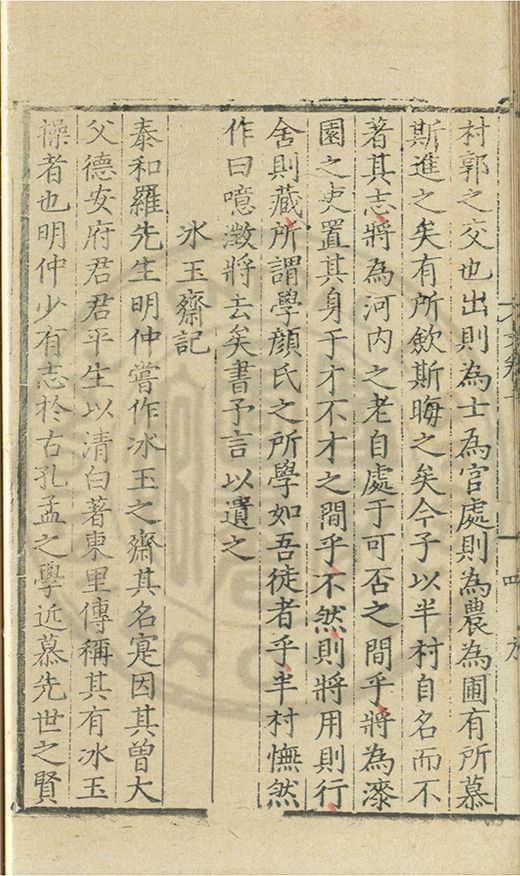 村郭之交也出則為士為官處則為農為圃有所慕
斯進之矣有所歉斯晦之矣今子以半村自名而不
著其志將為河内之老自處于可否之間乎將為漆
園之吏置其身于才不才之間乎不然則將用則行
舍則藏所謂學顔氏之所學如吾徒者乎半村憮然
作曰噫澂將去矣書予言以遺之
冰玉齋記
泰和羅先生明仲嘗作冰玉之齋其名寔因其曽大
父德安府君君平生以清白著東里傳稱其有冰玉
操者也明仲少有志於古孔孟之學近慕先世之賢